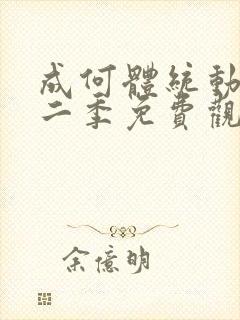 成何體統動
二季免費觀
余億明